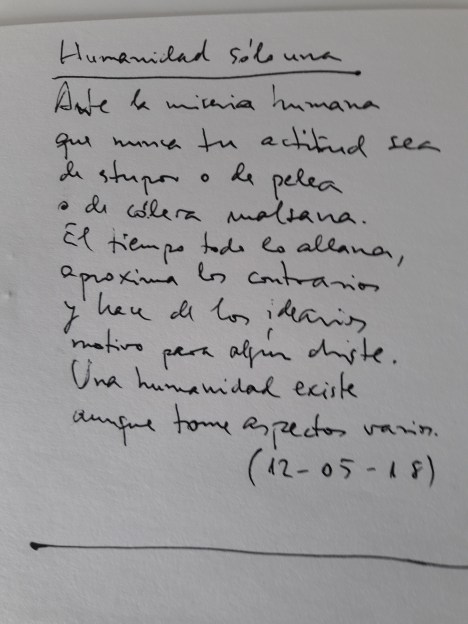 Humanidad sólo una
Ante la miseria humana
que nunca tu actitud sea
de stupor o de pelea
o de cólera malsana.
El tiempo todo lo allana,
aproxima los contrarios
y hace de los idearios
motivo para algún chiste.
Una humanidad existe
aunque tome aspectos varios.
(12-05-18)